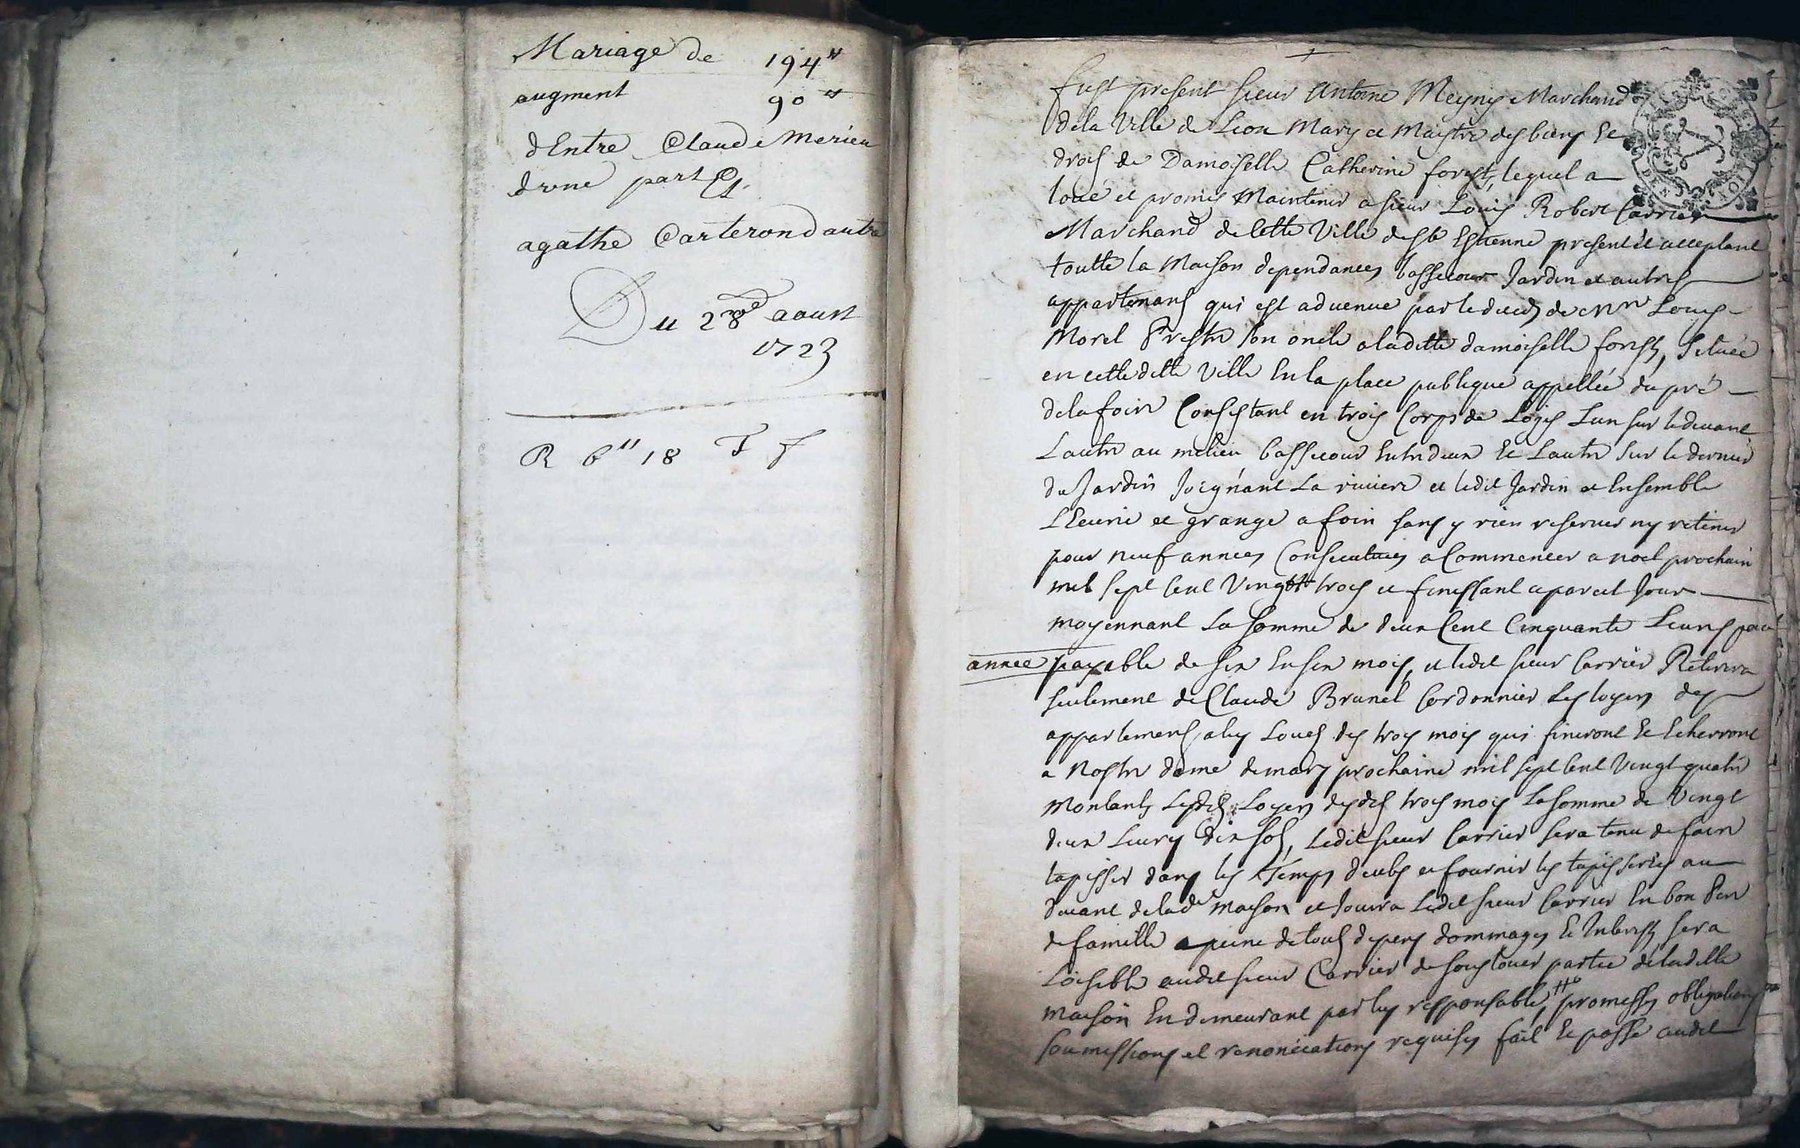 Mariage de 194"
augment 90"
d'Entre Claude Merieu
d'une part Et
agathe Carterond autre
Du 28 aoust
1723
R 6" 18 s
fust present sieur Antoine Meyny Marchand
dela Ville de Lion Mary et Maistre des biens Et
drois de Damoiselle Catherine forest, lequel a
loué et promis Maintenir a sieur Louis Robert Carrier
Marchand de cette Ville de St Estienne present et acceptant
toutte la Maison dependances bassecour Jardin et autres
appartenans qui est advenue par le deces de Mre Louis
Morel Prestre son oncle a laditte damoiselle forest, scituée
en cette ditte Ville En la place publique appellée du pré
dela foire Consistant en trois Corps de Logis Lun sur le devant
Lautre au milieu bassecour Entre deux Et Lautre sur le dernier
du Jardin Joignant La riviere et ledit Jardin et Ensemble
LEcurie et grange a foin sans y rien reserver ny retenir
pour neuf années Consecutives a Commencer a noel prochain
mil sept cent Vingt trois et finissant a pareil Jour
moyennant La somme de deux Cent Cinquante Livres pour
année payable de six En six mois, et ledit sieur Carrier Retirera
seulement de Claude Brunel Cordonnier Les loyers des
appartemens a luy Loués des trois mois qui finiront Et Echerront
a Nostre dame de mars prochaine mil sept cent Vingt quatre
Montants Lesdits Loyers desdits trois mois La somme de Vingt
deux Livres dix sols, Ledit sieur Carrier sera tenu de faire
tapisser dans les Temps deubs et fournir les tapisseries au
devant de lade maison et Jouira Ledit sieur Carrier En bon Pere
de famille a peine de tous depens dommages Et Interests, sera
Loisible audit sieur Carrier de souslouer partie de laditte
maison En demeurant par luy responsable, promesses obligations
soumissions et renonciations requises fait Et passé audit